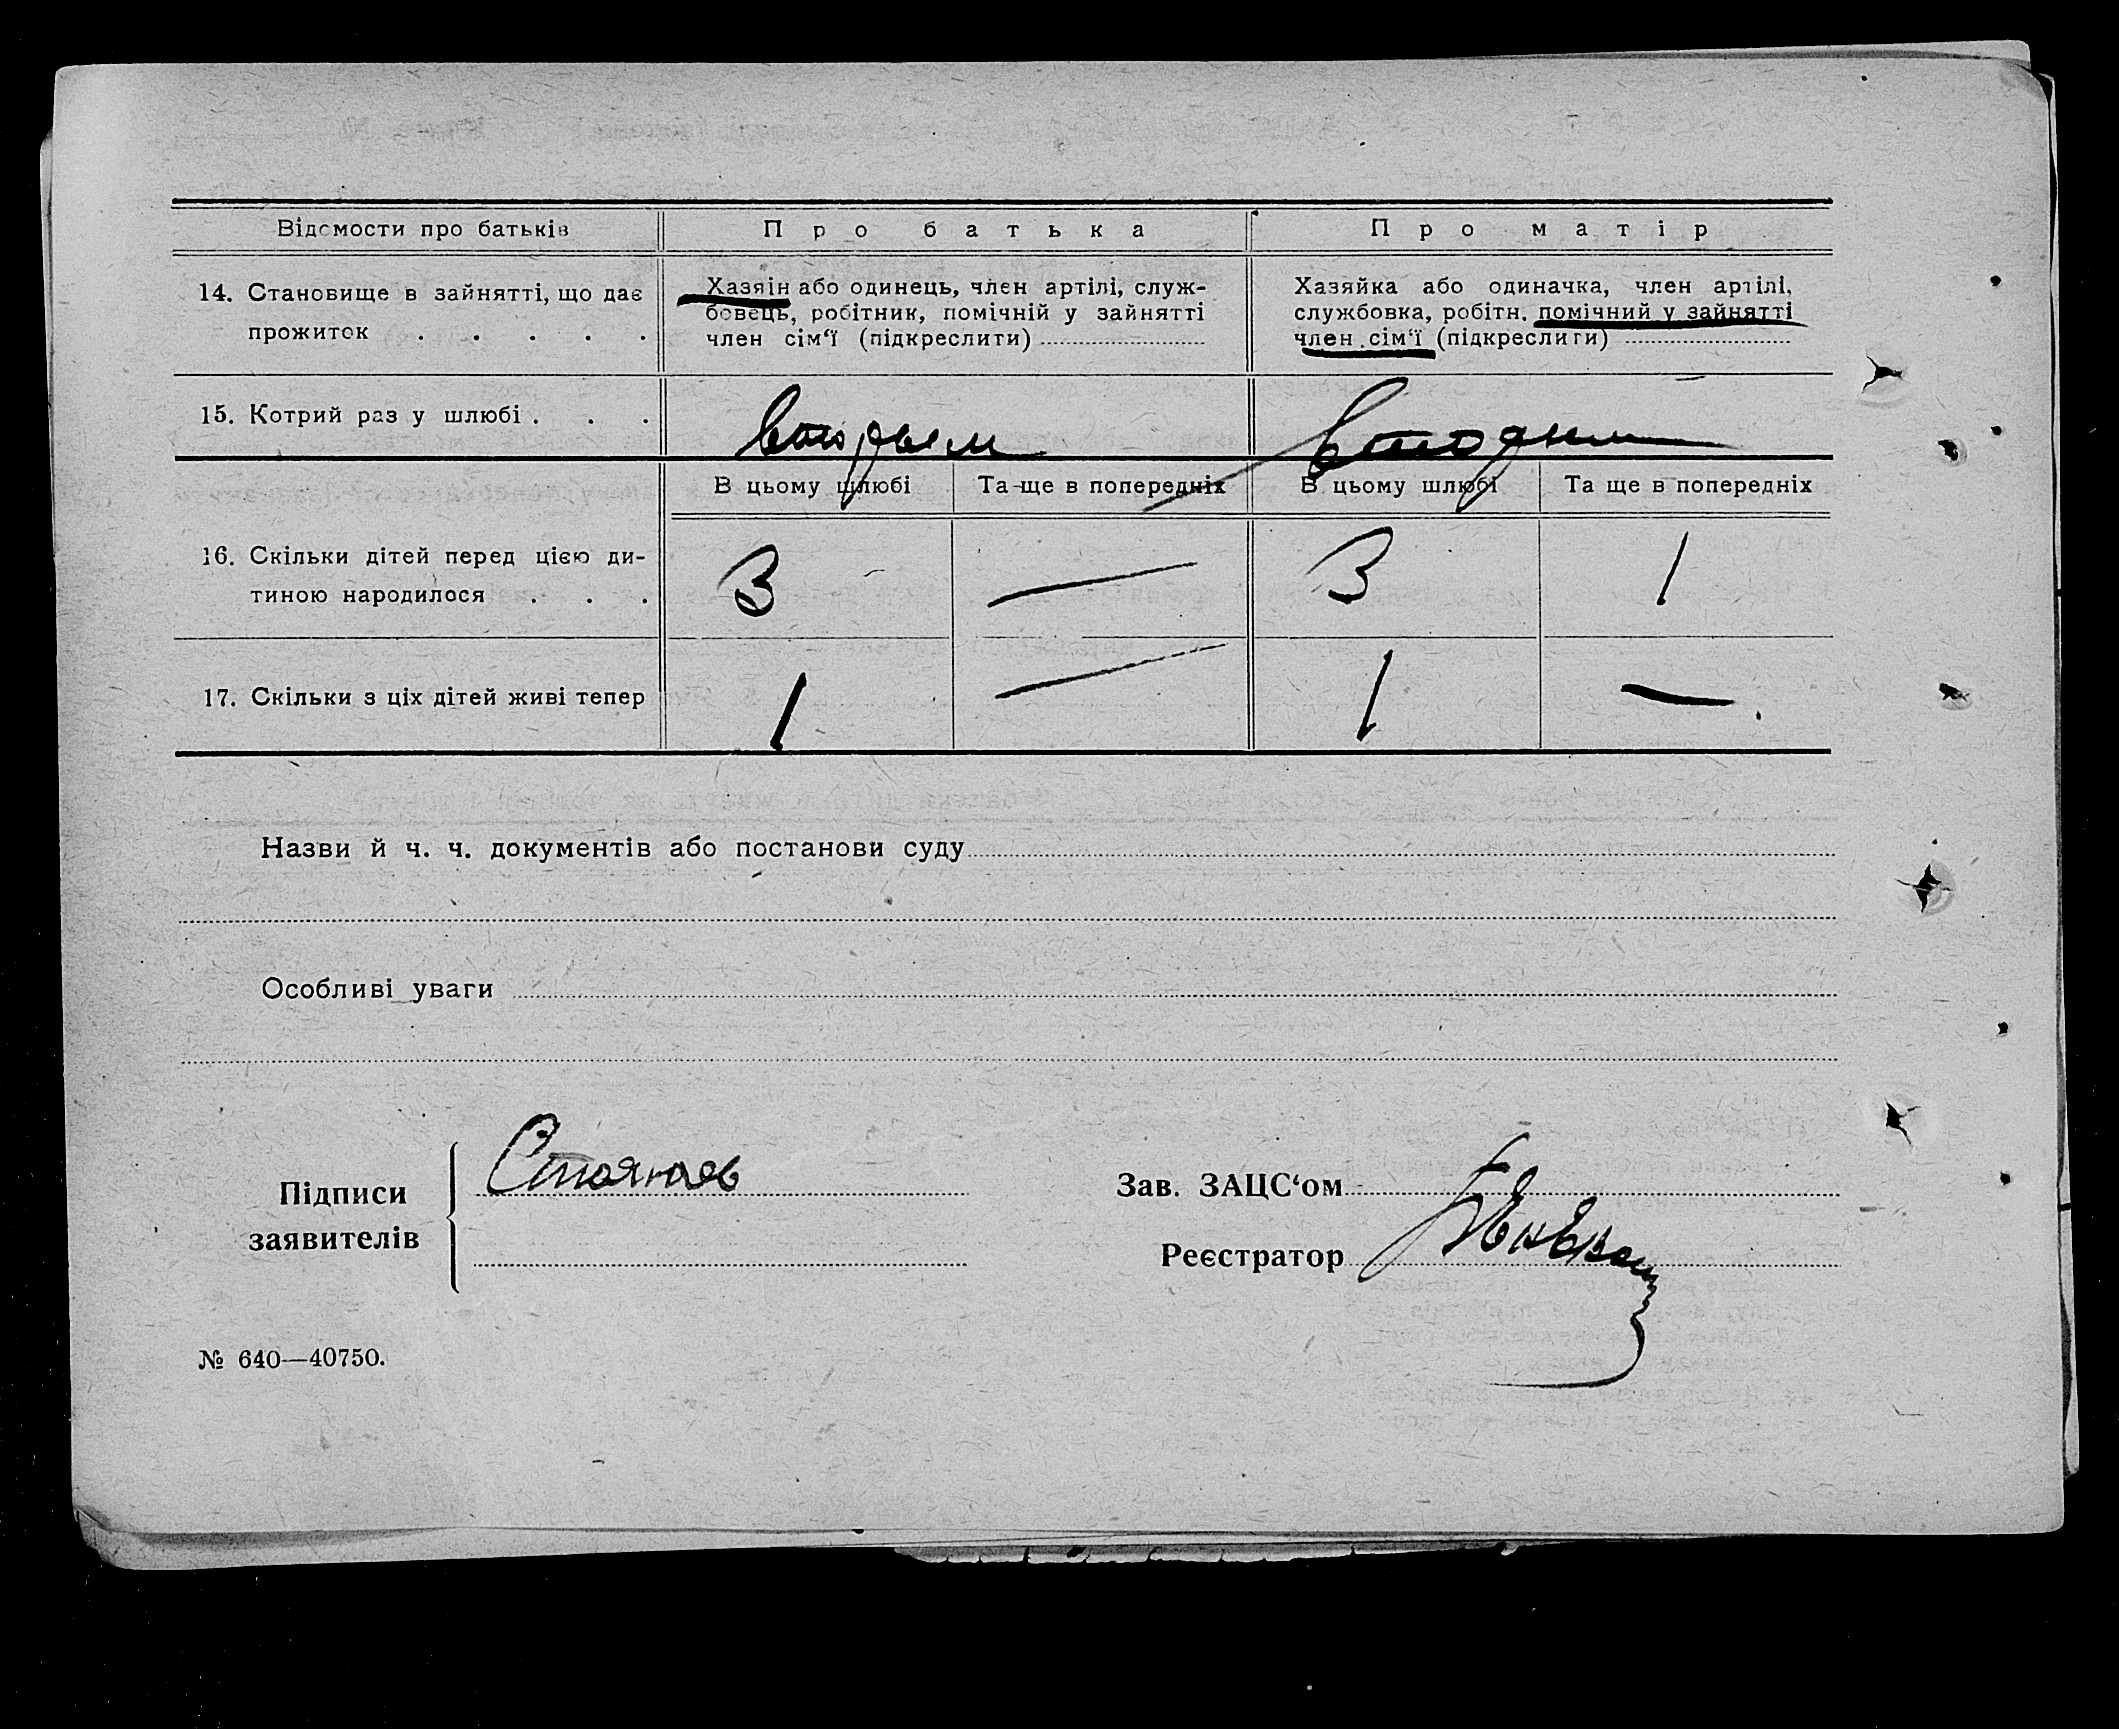 Відомости про батьків
Про батька
Про матір
14. Становище в зайнятті, що дає
прожиток . . . . .
Хазяїн або одинець, член артілі, служ-
бовець, робітник, помічній у зайнятті
член сім‘ї (підкреслити)
Хазяйка або одиначка, член артілі,
службовка, робітн. помічний у зайнятті
член сім‘ї (підкреслити)
15. Котрий раз у шлюбі . . .
вторым
вторым
В цьому шлюбі
Та ще в попередніх
В цьому шлюбі
Та ще в попередніх
16. Скільки дітей перед цією ди-
тиною народилося . . .
3
—
3
1
17. Скільки з ціх дітей живі тепер
1
—
1
—
Назви й ч. ч. документів або постанови суду
Особливі уваги
Підписи
заявителів
Стоянов
Зав. ЗАЦС‘ом
Реєстратор
№ 640—40750.